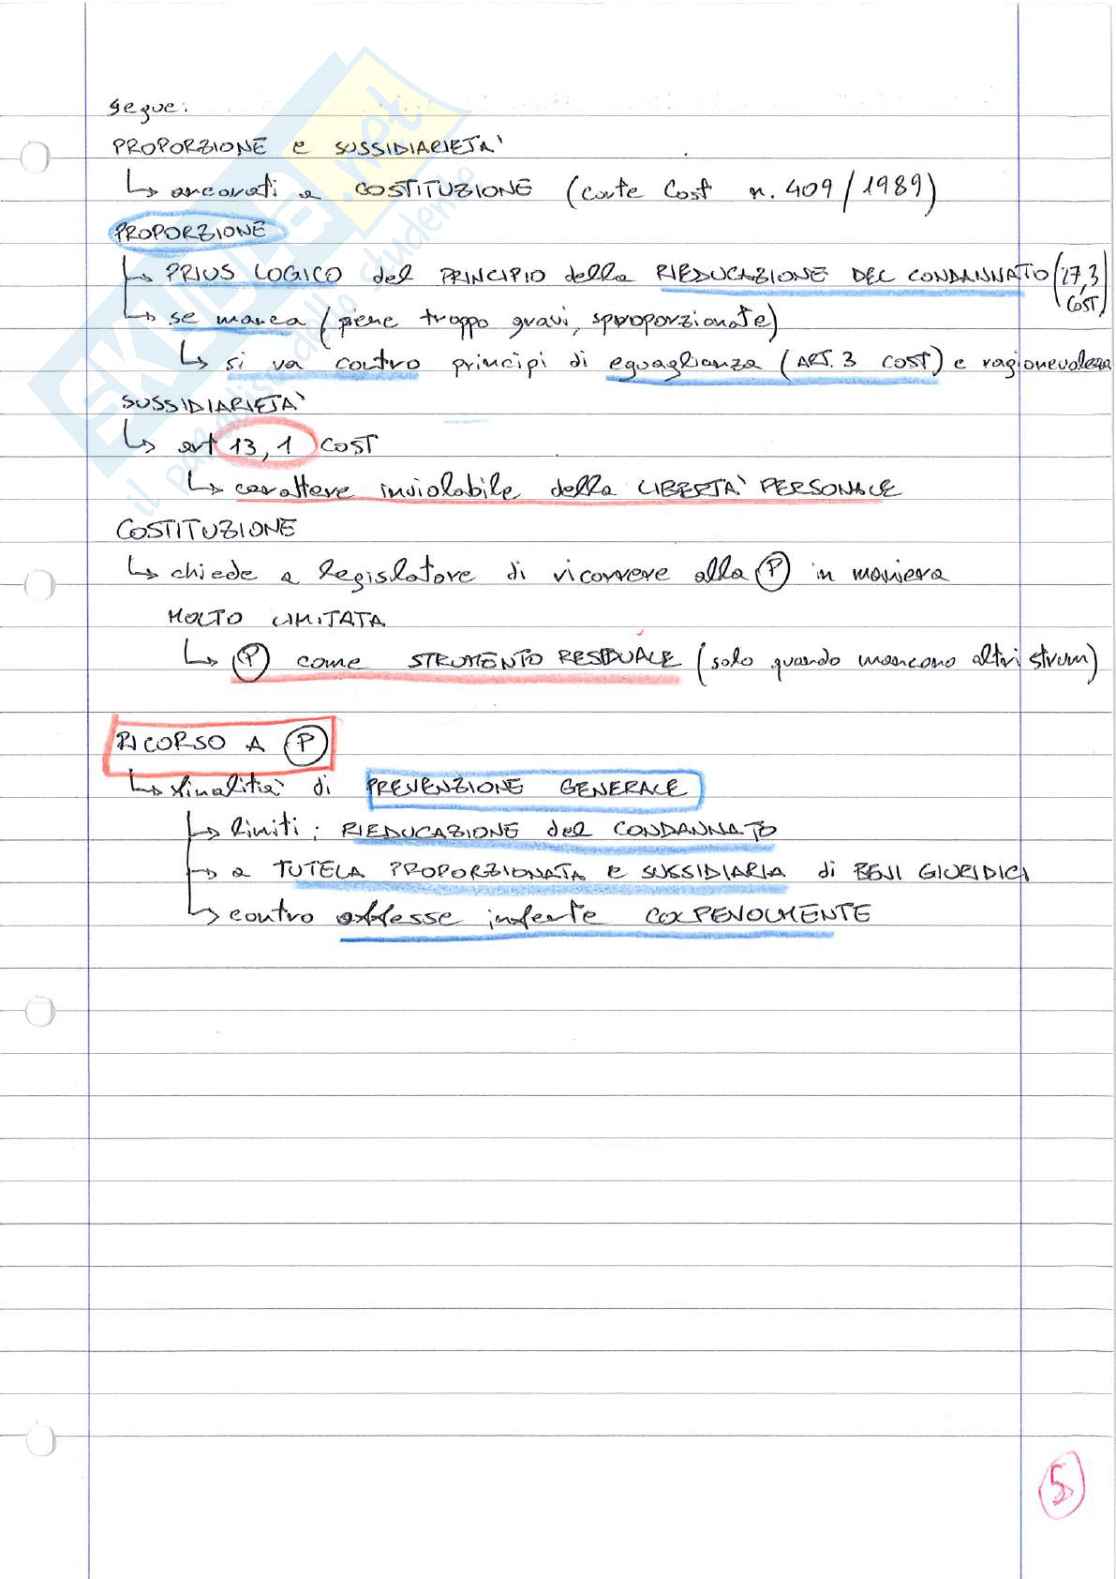 segue:
PROPORZIONE e SUSSIDIARIETA'
↳ ancorati a COSTITUZIONE (Corte Cost n. 409/1989)
PROPORZIONE
↳ PRIUS LOGICO del PRINCIPIO della RIEDUCAZIONE DEL CONDANNATO (27,3 COST)
↳ se manca (piene troppo gravi, sproporzionate)
↳ si va contro principi di eguaglianza (ART. 3 COST) e ragionevolezza
SUSSIDIARIETA'
↳ art 13, 1 COST
↳ carattere inviolabile della LIBERTA' PERSONALE
COSTITUZIONE
↳ chiede a legislatore di ricorrere alla (P) in maniera
MOLTO LIMITATA
↳ (P) come STRUMENTO RESIDUALE (solo quando mancano altri strum)
RICORSO A (P)
↳ finalità di PREVENZIONE GENERALE
↳ limiti: RIEDUCAZIONE del CONDANNATO
→ a TUTELA PROPORZIONATA e SUSSIDIARIA di BENI GIURIDICI
↳ contro offesse inferte COLPEVOLMENTE
5
SKUOLA.net
il paradiso dello studente